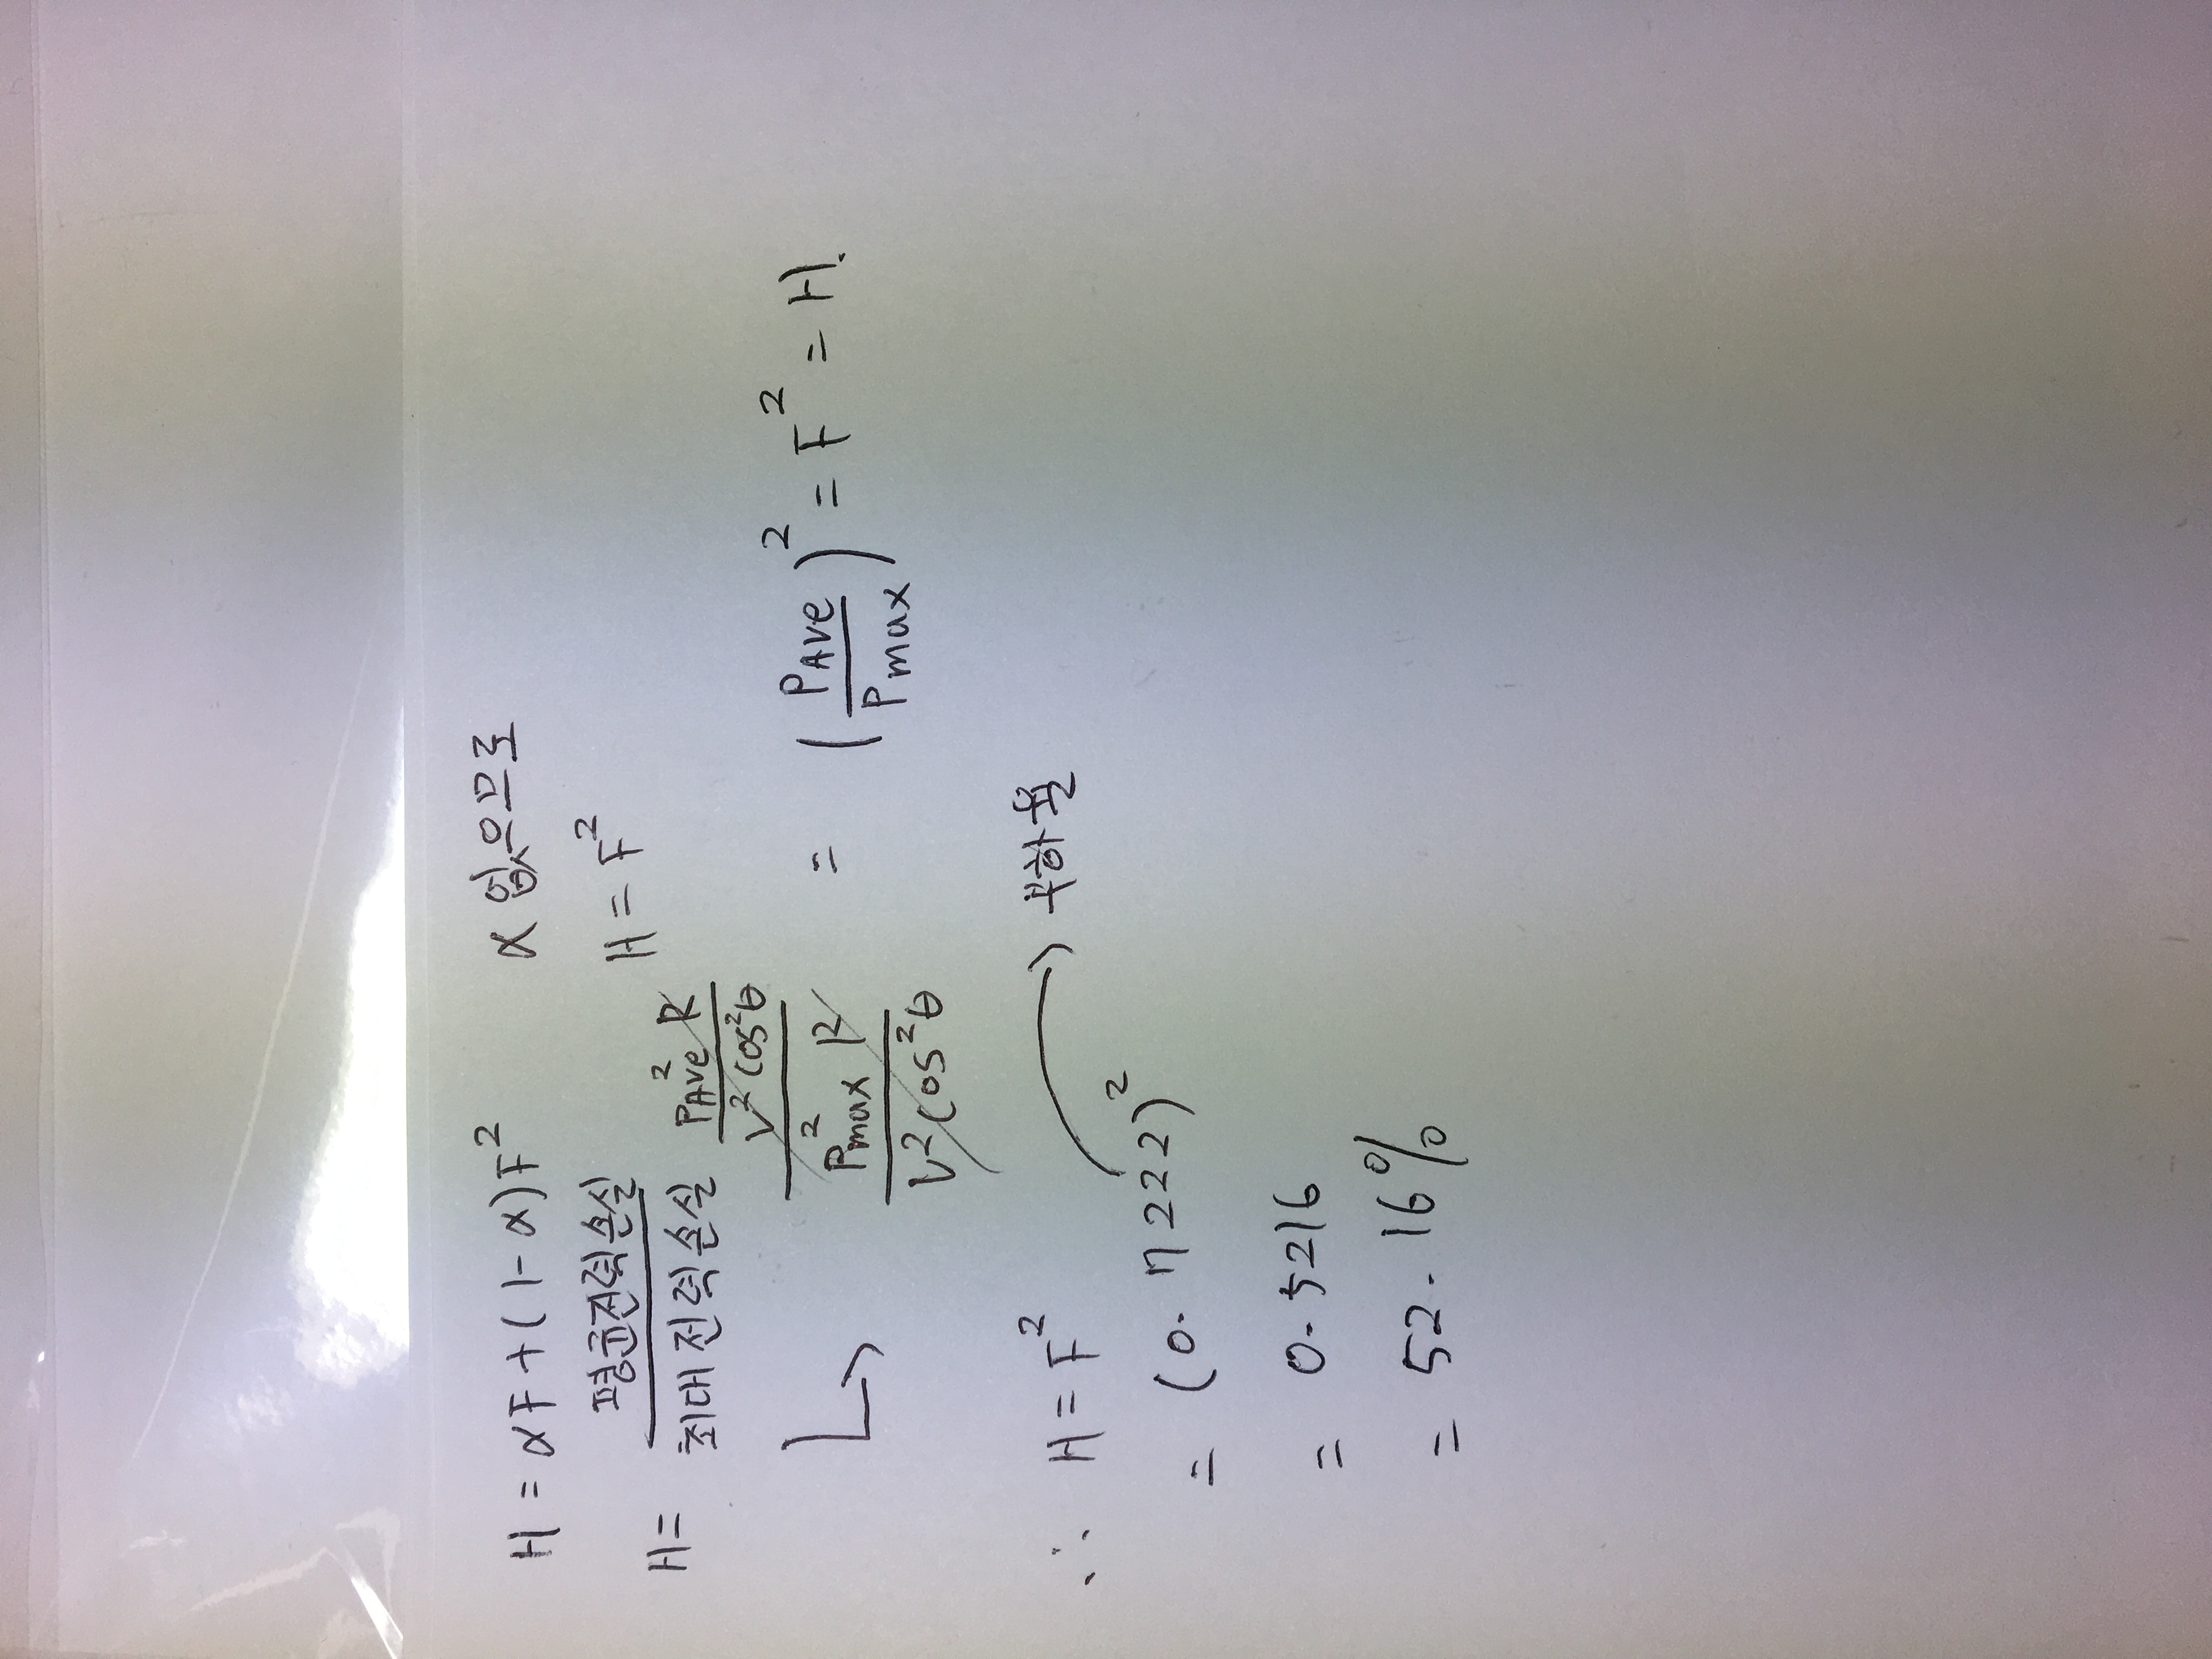 H = αF + (1-α)F² α 없으므로
H = 평균전력손실 / 최대전력손실 H = F²
↳ (P²Ave R / V² cos²θ) / (P²max R / V² cos²θ) = (PAve / Pmax)² = F² = H.
∴ H = F²
= (0.7222)² → 부하율
= 0.5216
= 52.16%